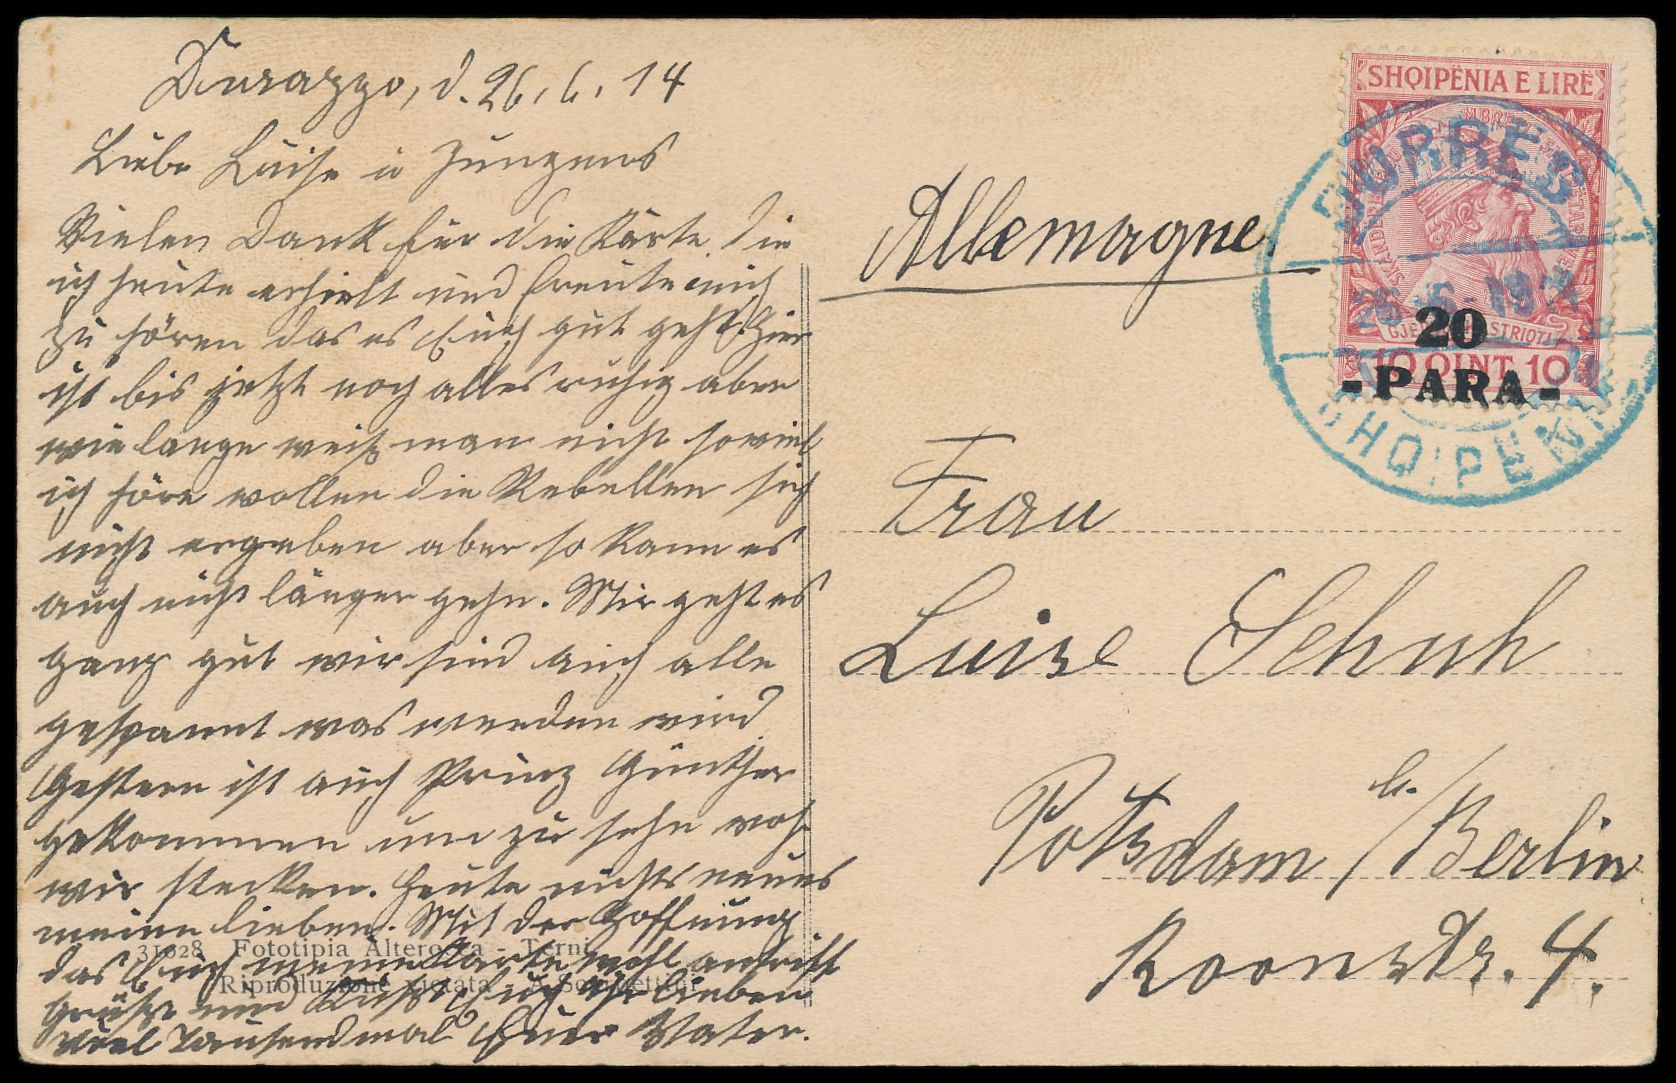 Durazzo, d. 26. 6. 14
Liebe Luise u Jungens
Vielen Dank für die Karte die
ich heute erhielt und freute mich
zu hören das es Euch gut geht. Hier
ist bis jetzt noch alles ruhig aber
wie lange weiß man nicht soviel
ich höre wollen die Rebellen sich
nicht ergeben aber so kann es
auch nicht länger gehn. Mir geht es
ganz gut wir sind auch alle
gespannt was werden wird
Gestern ist auch Prinz Günther
gekommen um zu sehn wo
wir stecken. Heute nichts neues
meine lieben. Mit der Hoffnung
das Euch meine Karte wohl antrifft
grüßt und küßt Euch Ihr lieben
viel Tausendmal Euer Vater.
31028 Fototipia Alterocca - Terni
Riproduzione vietata
Allemagne
Frau
Luise Schuh
Potsdam b./Berlin
Roonstr. 4.
SHQIPËNIA E LIRË
GJERGJ KASTRIOTI
10 QINT 10
20
- PARA -
DURRËS
SHQIPENIË